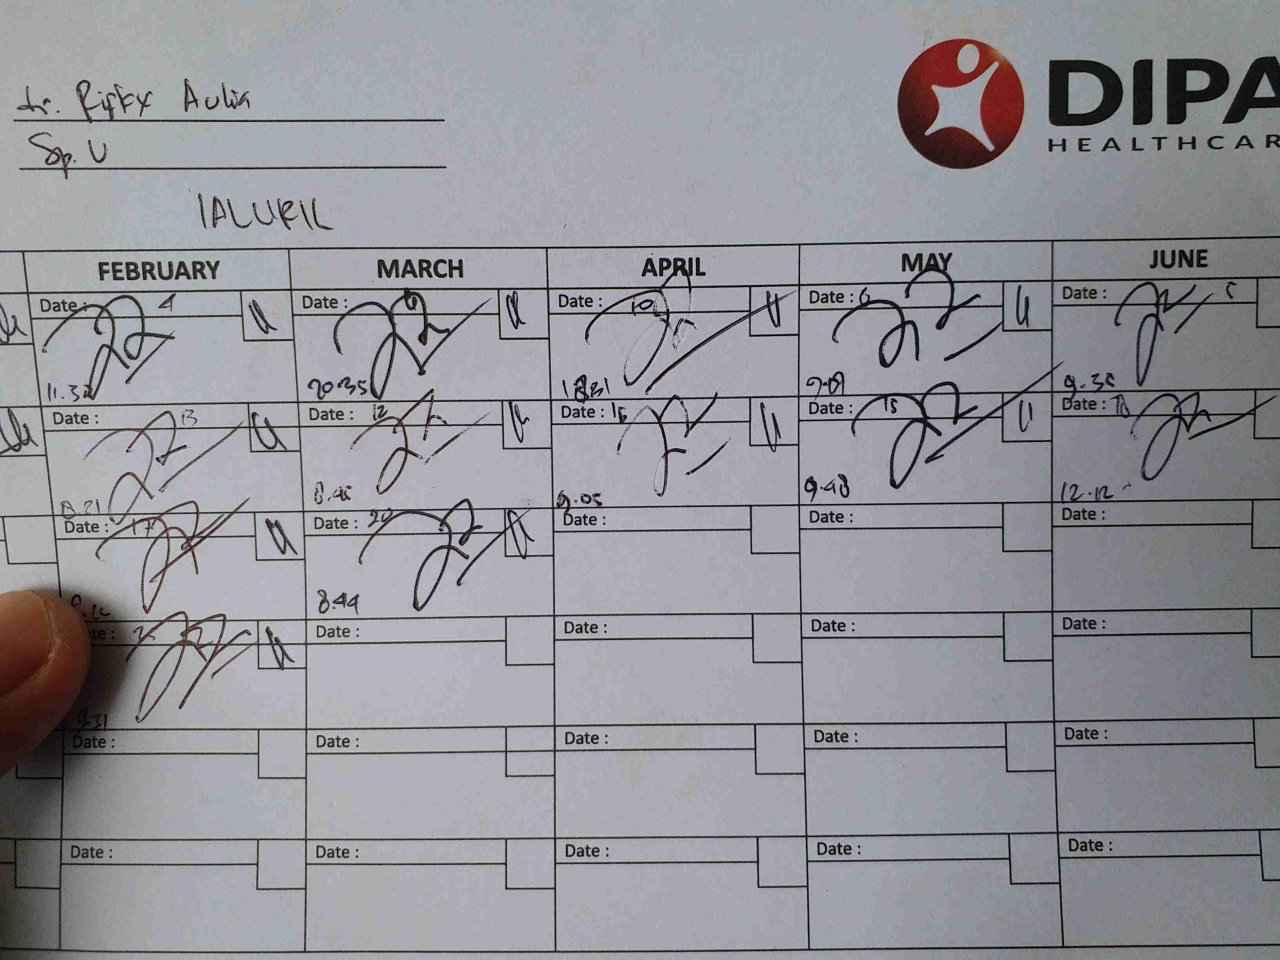 dr. Rizky Aulia
Sp. U
DIPA
HEALTHCAR
IALURIL
FEBRUARY MARCH APRIL MAY JUNE
Date : 4 Date : 6 Date : 10 Date : 6 Date : 5
11.32 20.35 9.09 9.35
Date : 13 Date : 12 Date : 15 Date : 15 Date : 10
8.21 8.45 9.05 9.48 12.12
Date : 17 Date : 20 Date : Date : Date :
9.12 8.44
Date : Date : Date : Date :
9.31
Date : Date : Date : Date : Date :
Date : Date : Date : Date : Date :